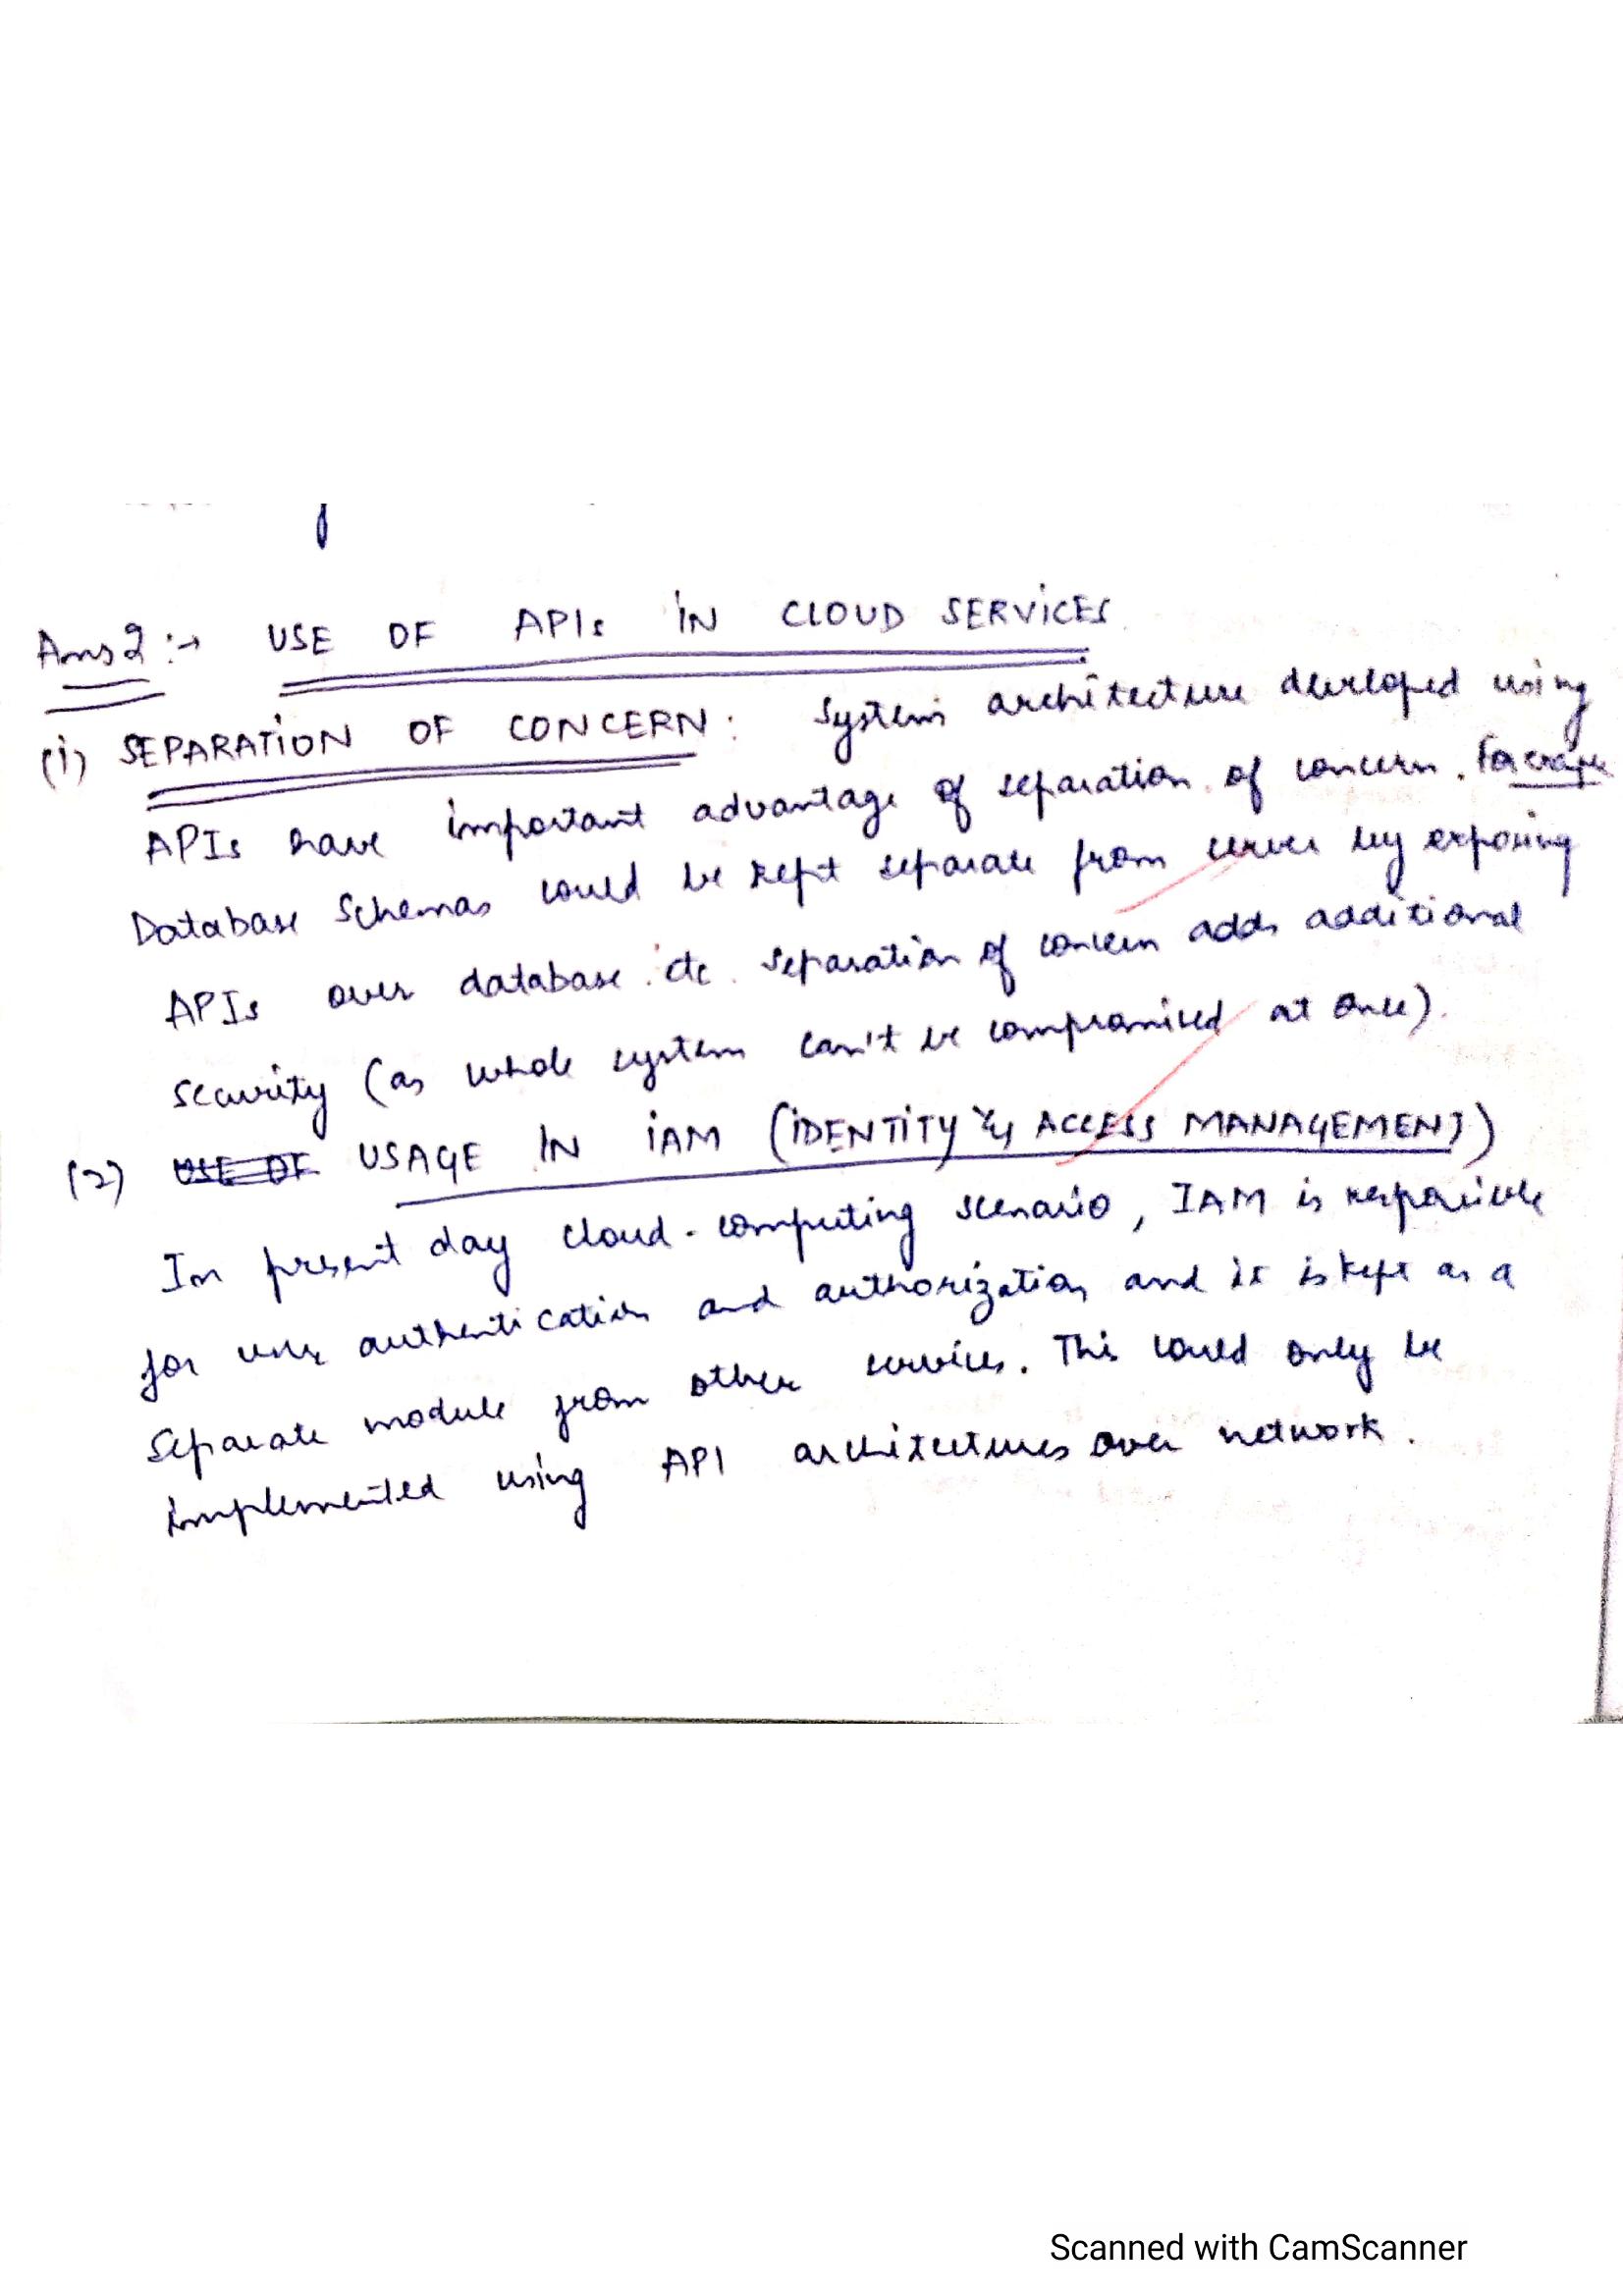 Ans 2 :→ USE OF APIs IN CLOUD SERVICES
(i) SEPARATION OF CONCERN : System architecture developed using
APIs have important advantage of separation of concern. For example
Database Schemas could be kept separate from server by exposing
APIs over database etc. Separation of concern adds additional
security (as whole system can't be compromised at once).
(2) USE OF USAGE IN IAM (IDENTITY & ACCESS MANAGEMENT)
In present day cloud-computing scenario, IAM is responsible
for user authentication and authorization and it is kept as a
separate module from other services. This could only be
implemented using API architectures over network.
Scanned with CamScanner